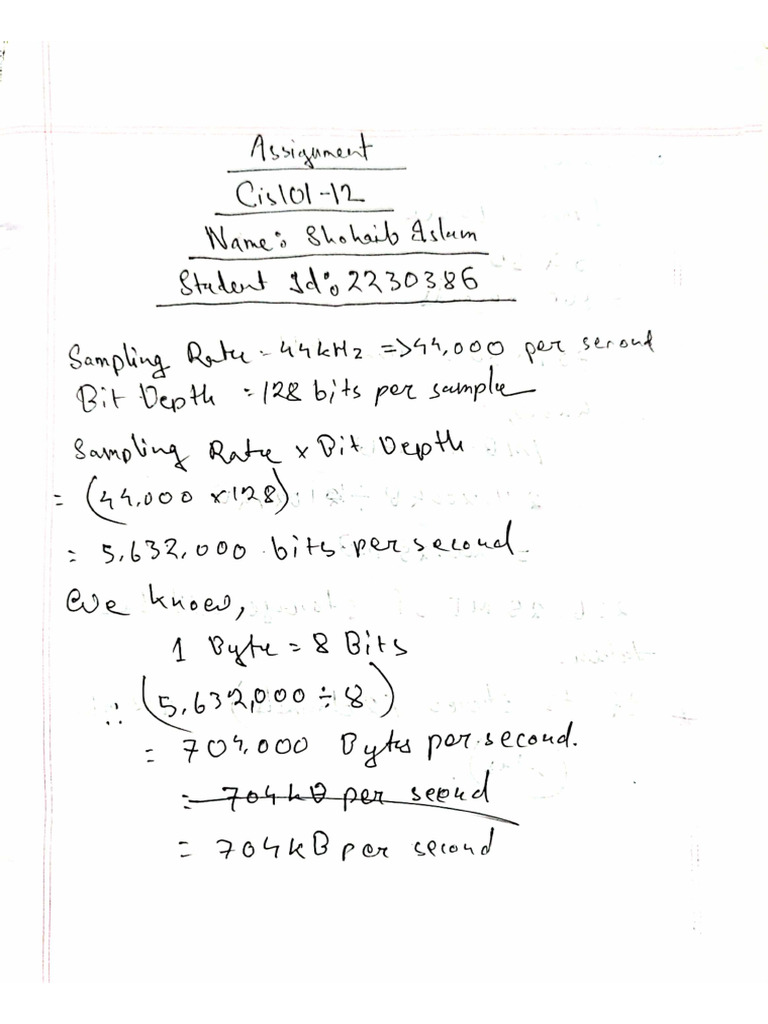 Assignment
Cis101-12
Name: Shohaib Islam
Student Id: 2230386
Sampling Rate = 44kHz => 44,000 per second
Bit Depth = 128 bits per sample
Sampling Rate × Bit Depth
= (44,000 × 128)
= 5,632,000 bits per second.
We know,
1 Byte = 8 Bits
∴ (5,632,000 ÷ 8)
= 704,000 Bytes per second.
= 704kB per seond
= 704kB per second